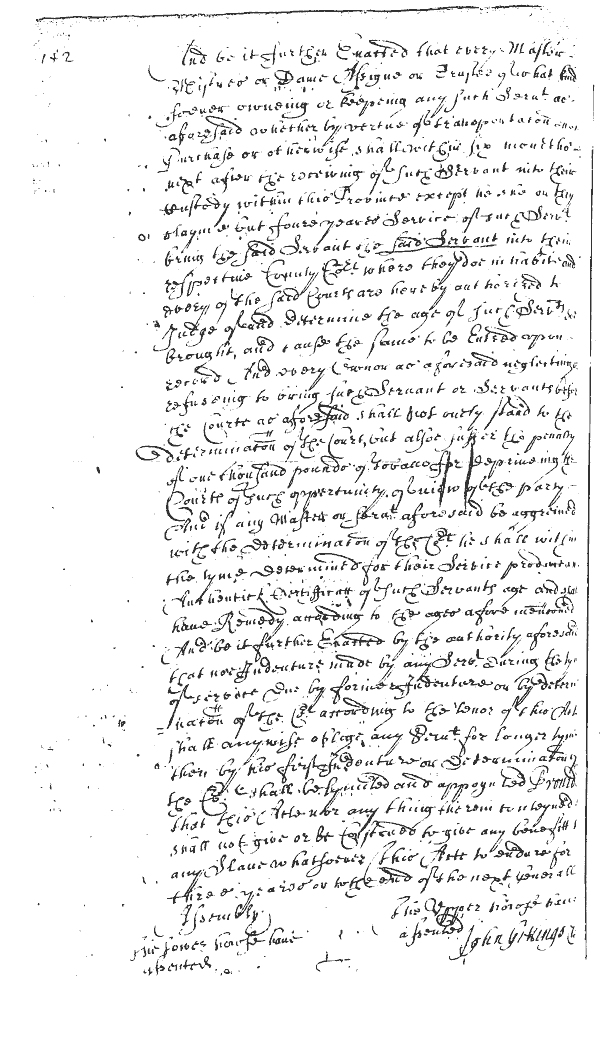 142
And be it further Enacted that every Master
Mistres or Dame Assigne or Trustee of what kind
soever owneing or keepeing any such Servt as
aforesaid whether by vertue of transportaton
purchase or otherwise shall within six moneths
next after the receiveing of such Servant into their
Custody within this Province except he she or they
clayme but foure yeares Service of such Servt
bring the said Servant the said Servant into their
respective County Cort where they doe inhabite and
every of the said Courts are hereby authorized to
Judge of and determine the age of such Servts so
brought, and cause the same to be Entred upon
record And every Owner as aforesaid neglecting
refuseing to bring such Servant or Servants before
the Courts as aforesaid shall not onely stand to the
determinaton of the Court, but alsoe suffer the penalty
of one thousand pounds of tobacco for depriveing the
Court of such opportunity of view of the party
And if any Master or Servt aforesaid be aggrieved
with the determinaton of the Cort he shall within
the tyme determined for their Service produce an
Authentick Certificate of such Servants age and shall
have Remedy according to the ages afore mentioned
And be it further Enacted by the authority aforesaid
that noe Indenture made by any Servt During the tyme
of service due by former Indenture or by determi
naton of the Cort according to the tenor of this Act
shall anywise oblige any Servt for longer tyme
then by his first Indenture or Determinaton of
the Cort shall be lymited and appoynted Provided
that this Acte nor any thing therein conteyned
shall not give or be Construed to give any benefitt to
any Slave whatsoever This Acte to endure for
three yeares or to the end of the next Generall
Assembly
The Lower howse have
assented
The Upper howse have
assented John Gittings